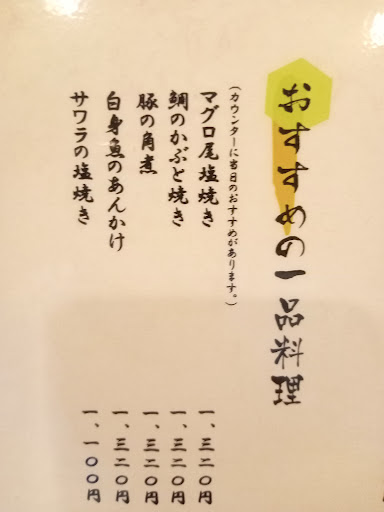 おすすめの一品料理
(カウンターに当日のおすすめがあります。)
マグロ尾塩焼き 一、三二〇円
鯛のかぶと焼き 一、三二〇円
豚の角煮 一、三二〇円
白身魚のあんかけ 一、三二〇円
サワラの塩焼き 一、一〇〇円